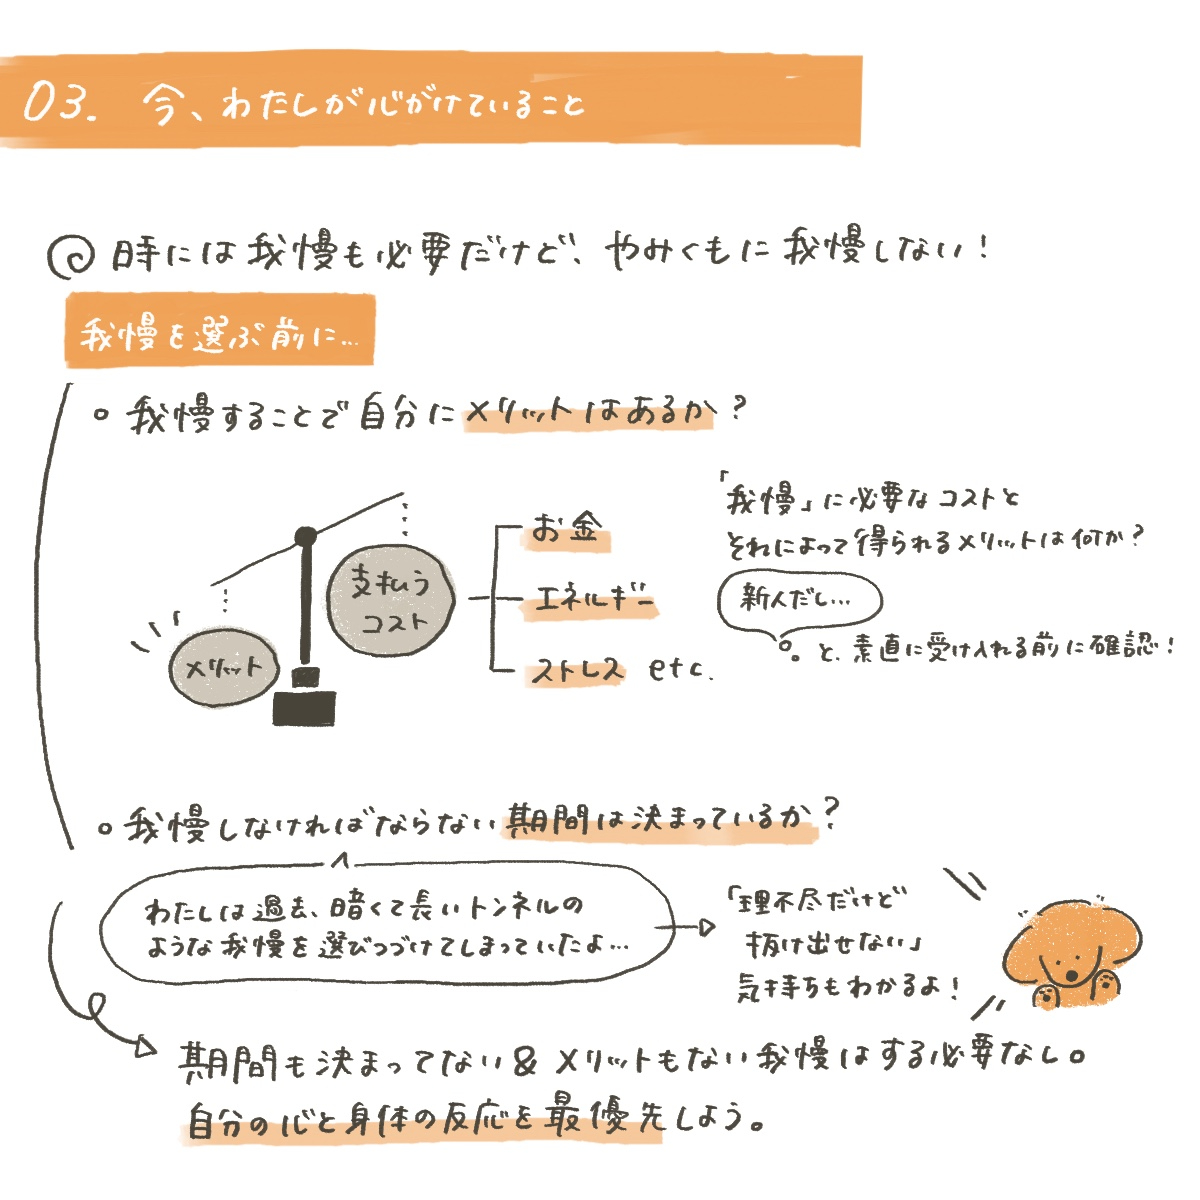 03. 今、わたしが心がけていること
時には我慢も必要だけど、やみくもに我慢しない!
我慢を選ぶ前に…
我慢することで自分にメリットはあるか?
メリット
支払う
コスト
お金
エネルギー
ストレス etc.
「我慢」に必要なコストと
それによって得られるメリットは何か?
新人だし…
と、素直に受け入れる前に確認!
我慢しなければならない期間は決まっているか?
わたしは過去、暗くて長いトンネルの
ような我慢を選びつづけてしまっていたよ…
「理不尽だけど
抜け出せない」
気持ちもわかるよ!
期間も決まってない & メリットもない我慢はする必要なし。
自分の心と身体の反応を最優先しよう。